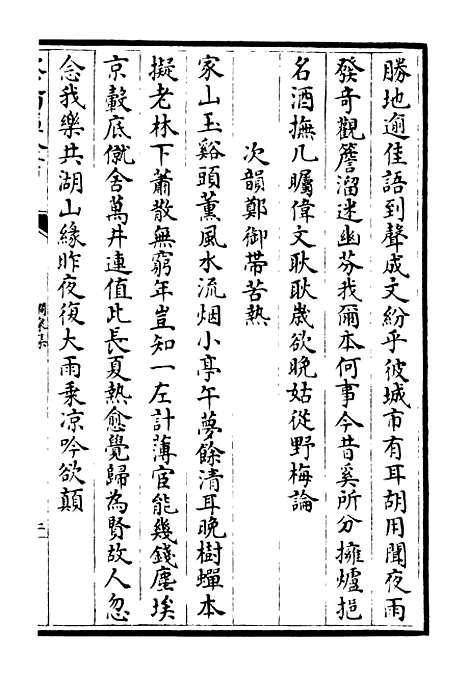 勝地逾佳語到聲成文紛乎彼城市有耳胡用聞夜雨
發奇觀簷溜迷幽芬我爾本何事今昔奚所分擁爐挹
名酒撫几矚偉文耿耿歲欲晚姑從野梅論
次韻鄭御帶苦熱
家山玉谿頭薰風水流烟小亭午夢餘清耳晚樹蟬本
擬老林下蕭散無窮年豈知一左計薄宦能幾錢塵埃
京轂底僦舍萬井連值此長夏熱愈覺歸為賢故人忽
念我樂共湖山緣昨夜復大雨乘凉吟欲顛
澗泉集